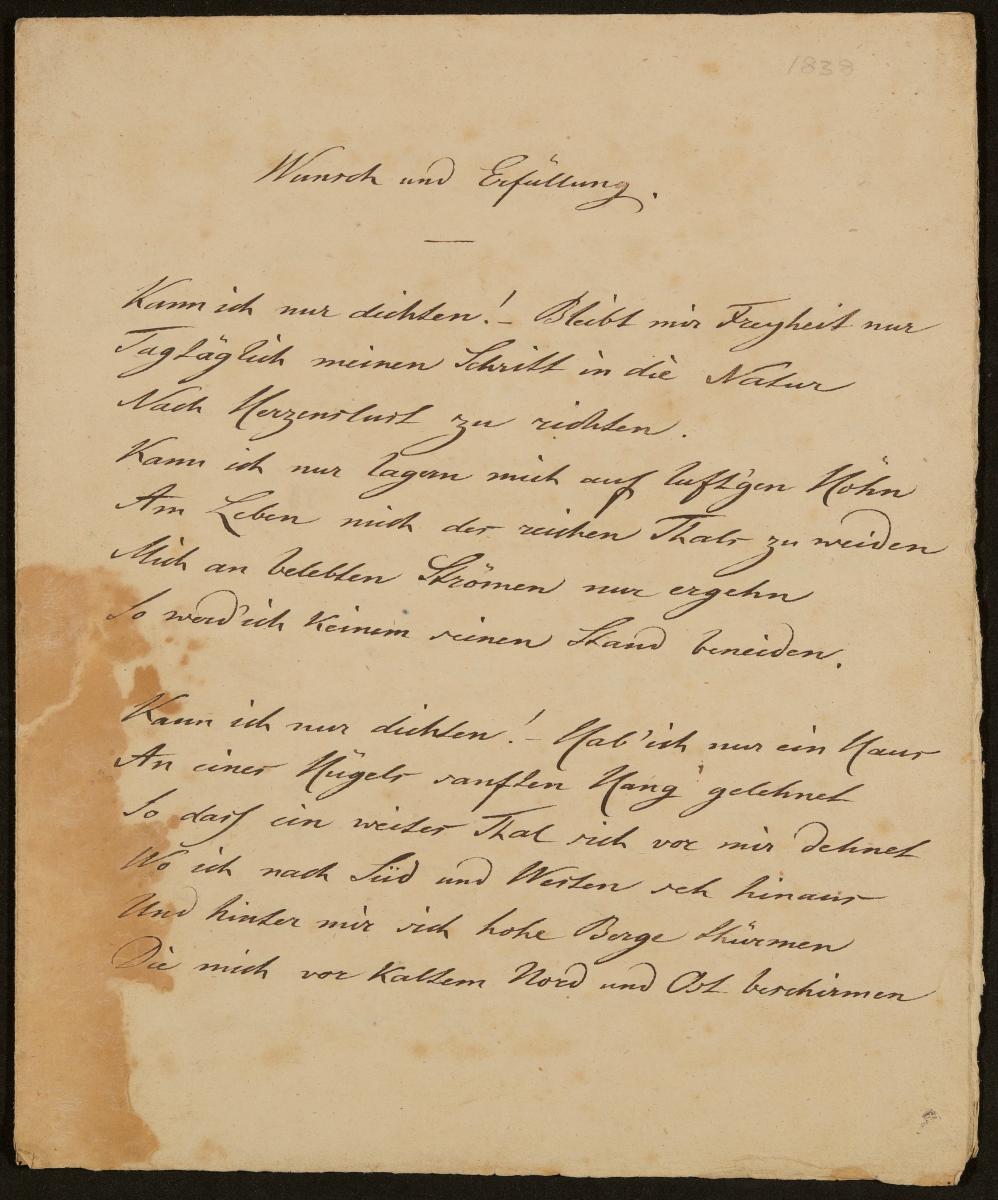 1838
Wunsch und Erfüllung.
Kann ich nur dichten! – Bleibt mir Freyheit nur
Tagtäglich meinen Schritt in die Natur
Nach Herzenslust zu richten.
Kann ich nur lagern mich auf luft'gen Höhn
Am Leben mich des reichen Thals zu weiden
Mich an belebten Strömen nur ergehn
So werd' ich Keinem seinen Stand beneiden.
Kann ich nur dichten! – Hab' ich nur ein Haus
An eines Hügels sanften Hang gelehnet
So dass ein weites Thal sich vor mir dehnet
Wo ich nach Süd und Westen seh hinaus
Und hinter mir sich hohe Berge thürmen
Die mich vor Kaltem Nord und Ost beschirmen